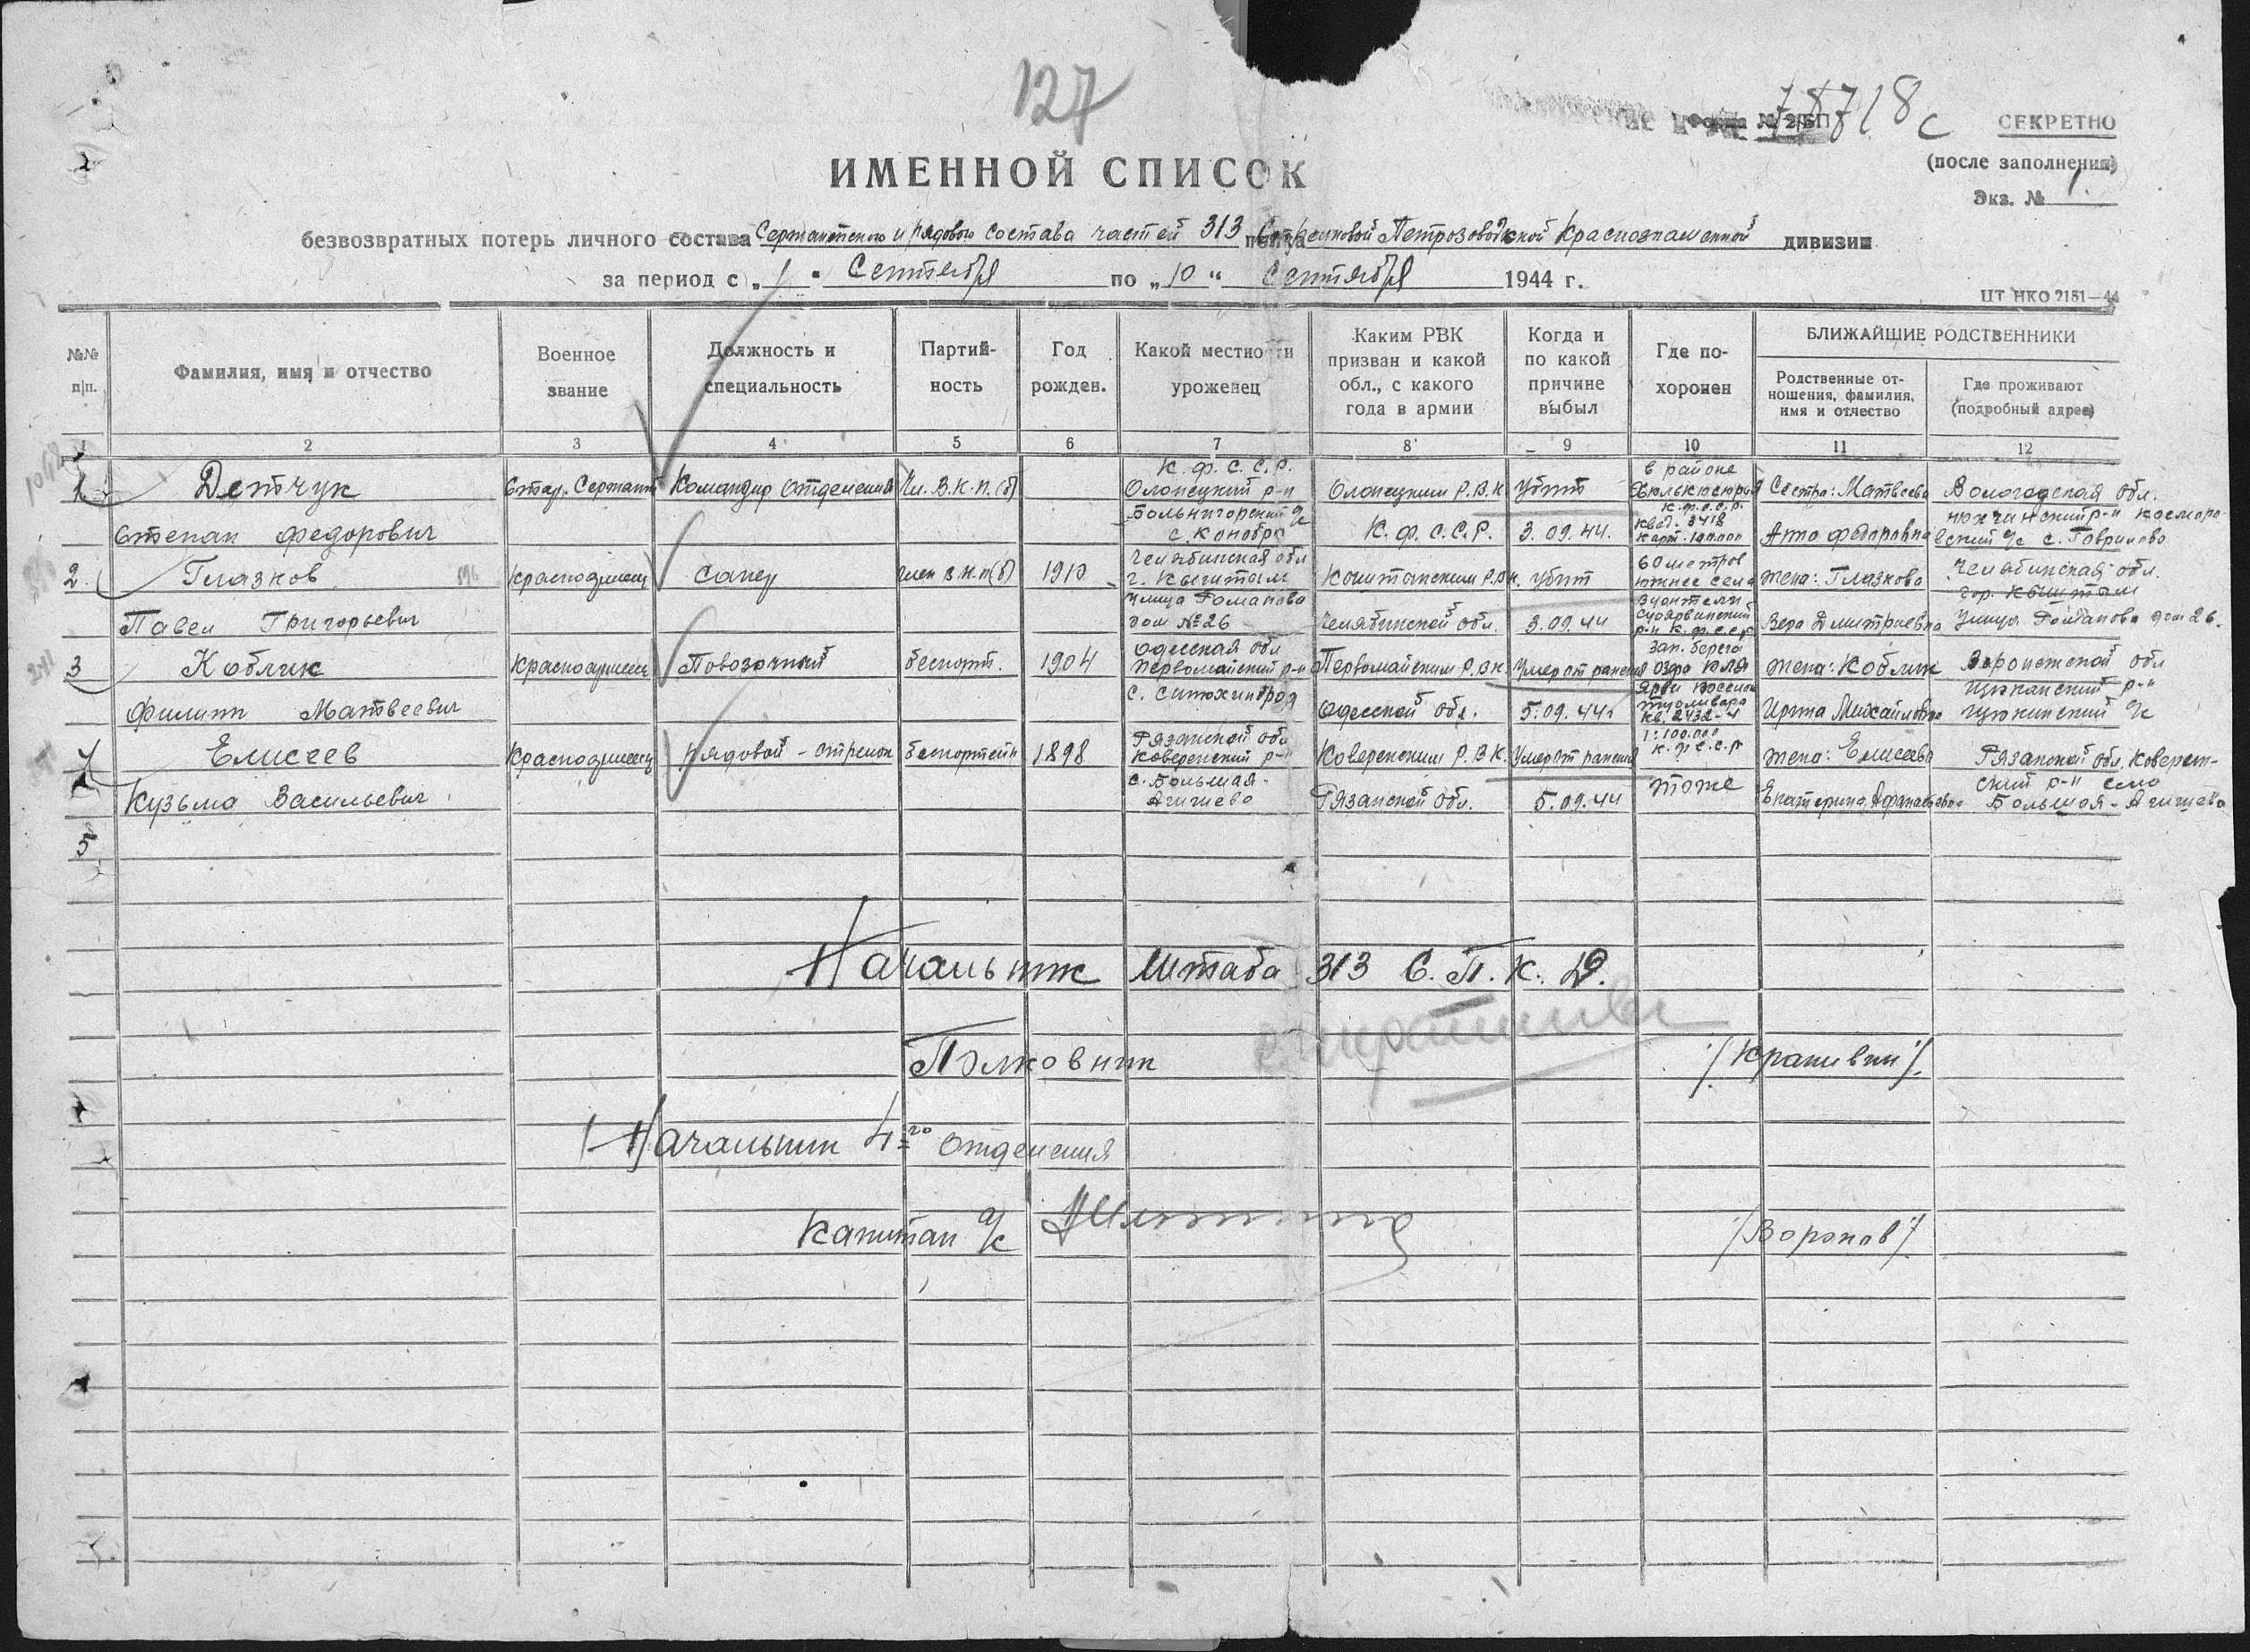 127
78718с
СЕКРЕТНО
(после заполнения)
Экз. № 1.
ИМЕННОЙ СПИСОК
безвозвратных потерь личного состава Сержантского и рядового состава частей 313 Стрелковой Петрозаводской Краснознаменной дивизии
за период с „1“ Сентября по „10“ Сентября 1944 г.
ЦТ НКО 2151—44
№№ п/п.
Фамилия, имя и отчество
Военное звание
Должность и специальность
Партий-
ность
Год рожден.
Какой местности уроженец
Каким РВК
призван и какой
обл., с какого
года в армии
Когда и
по какой
причине
выбыл
Где по-
хоронен
БЛИЖАЙШИЕ РОДСТВЕННИКИ
Родственные от-
ношения, фамилия,
имя и отчество
Где проживают
(подробный адрес)
1 2 3 4 5 6 7 8 9 10 11 12
1 Детчук Степан Федорович
Стар. Сержант
Командир Отделения
Чл. В.К.П.(б)
К.Ф.С.С.Р.
Олонецкий р-н
с/с
с. Конобро
Олонецким Р.В.К.
К.Ф.С.С.Р.
убит
3.09.44.
в районе
К.Ф.С.С.Р.
Квад. 3418
Карт. 100000
Сестра: Матвеева
Анна Федоровна
Вологодская обл.
р-н
с/с с. Гаврилово
2. Глазков Павел Григорьевич
Красноармеец
Сапер
член В.К.П(б)
1910
Челябинская обл
г. Кыштым
улица Романова
дом № 26
Кыштымским Р.В.К.
Челябинской обл.
убит
3.09.44
60 метров
южнее села
Вуонтели
Суоярвинский
р-н К.Ф.С.С.Р
жена: Глазкова
Вера Дмитриевна
Челябинская обл.
гор. Кыштым
Улица Романова дом 26.
3 Коблик Филипп Матвеевич
Красноармеец
Повозочный
беспарт.
1904
Одесская обл
Первомайский р-н
с. Синюхинброд
Первомайским Р.В.К.
Одесской обл.
Умер от ранения
5.09.44г
Зап. берега
Озера
Ярви
Кв. 2432-4
1:100.000
К.Ф.С.С.Р
жена: Коблик
Ирина Михайловна
Воронежской обл
р-н
с/с
4 Елисеев Кузьма Васильевич
Красноармеец
Рядовой - стрелок
беспартейн
1898
Рязанской обл
Коверенский р-н
с. Большая-
Агишево
Коверенским Р.В.К.
Рязанской обл.
Умер от ранения
5.09.44
тоже
жена: Елисеева
Екатерина Афанасьевна
Рязанской обл. Коверен-
ский р-н село
Большая-Агишево
5
Начальник Штаба 313 С.П.К.Д.
Полковник /Крапивин/.
Начальник 4го отделения
Капитан а/с /Воронов/.